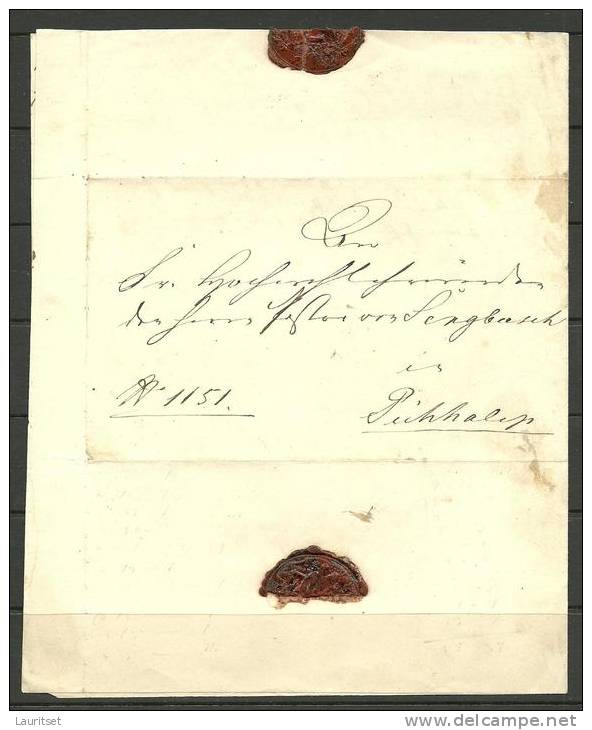 An
Sr. Hochwohlehrwürden
den Herrn Pastor von Sengbusch
in
No 1151.
Pühhalep
Lauritset
www.delcampe.net